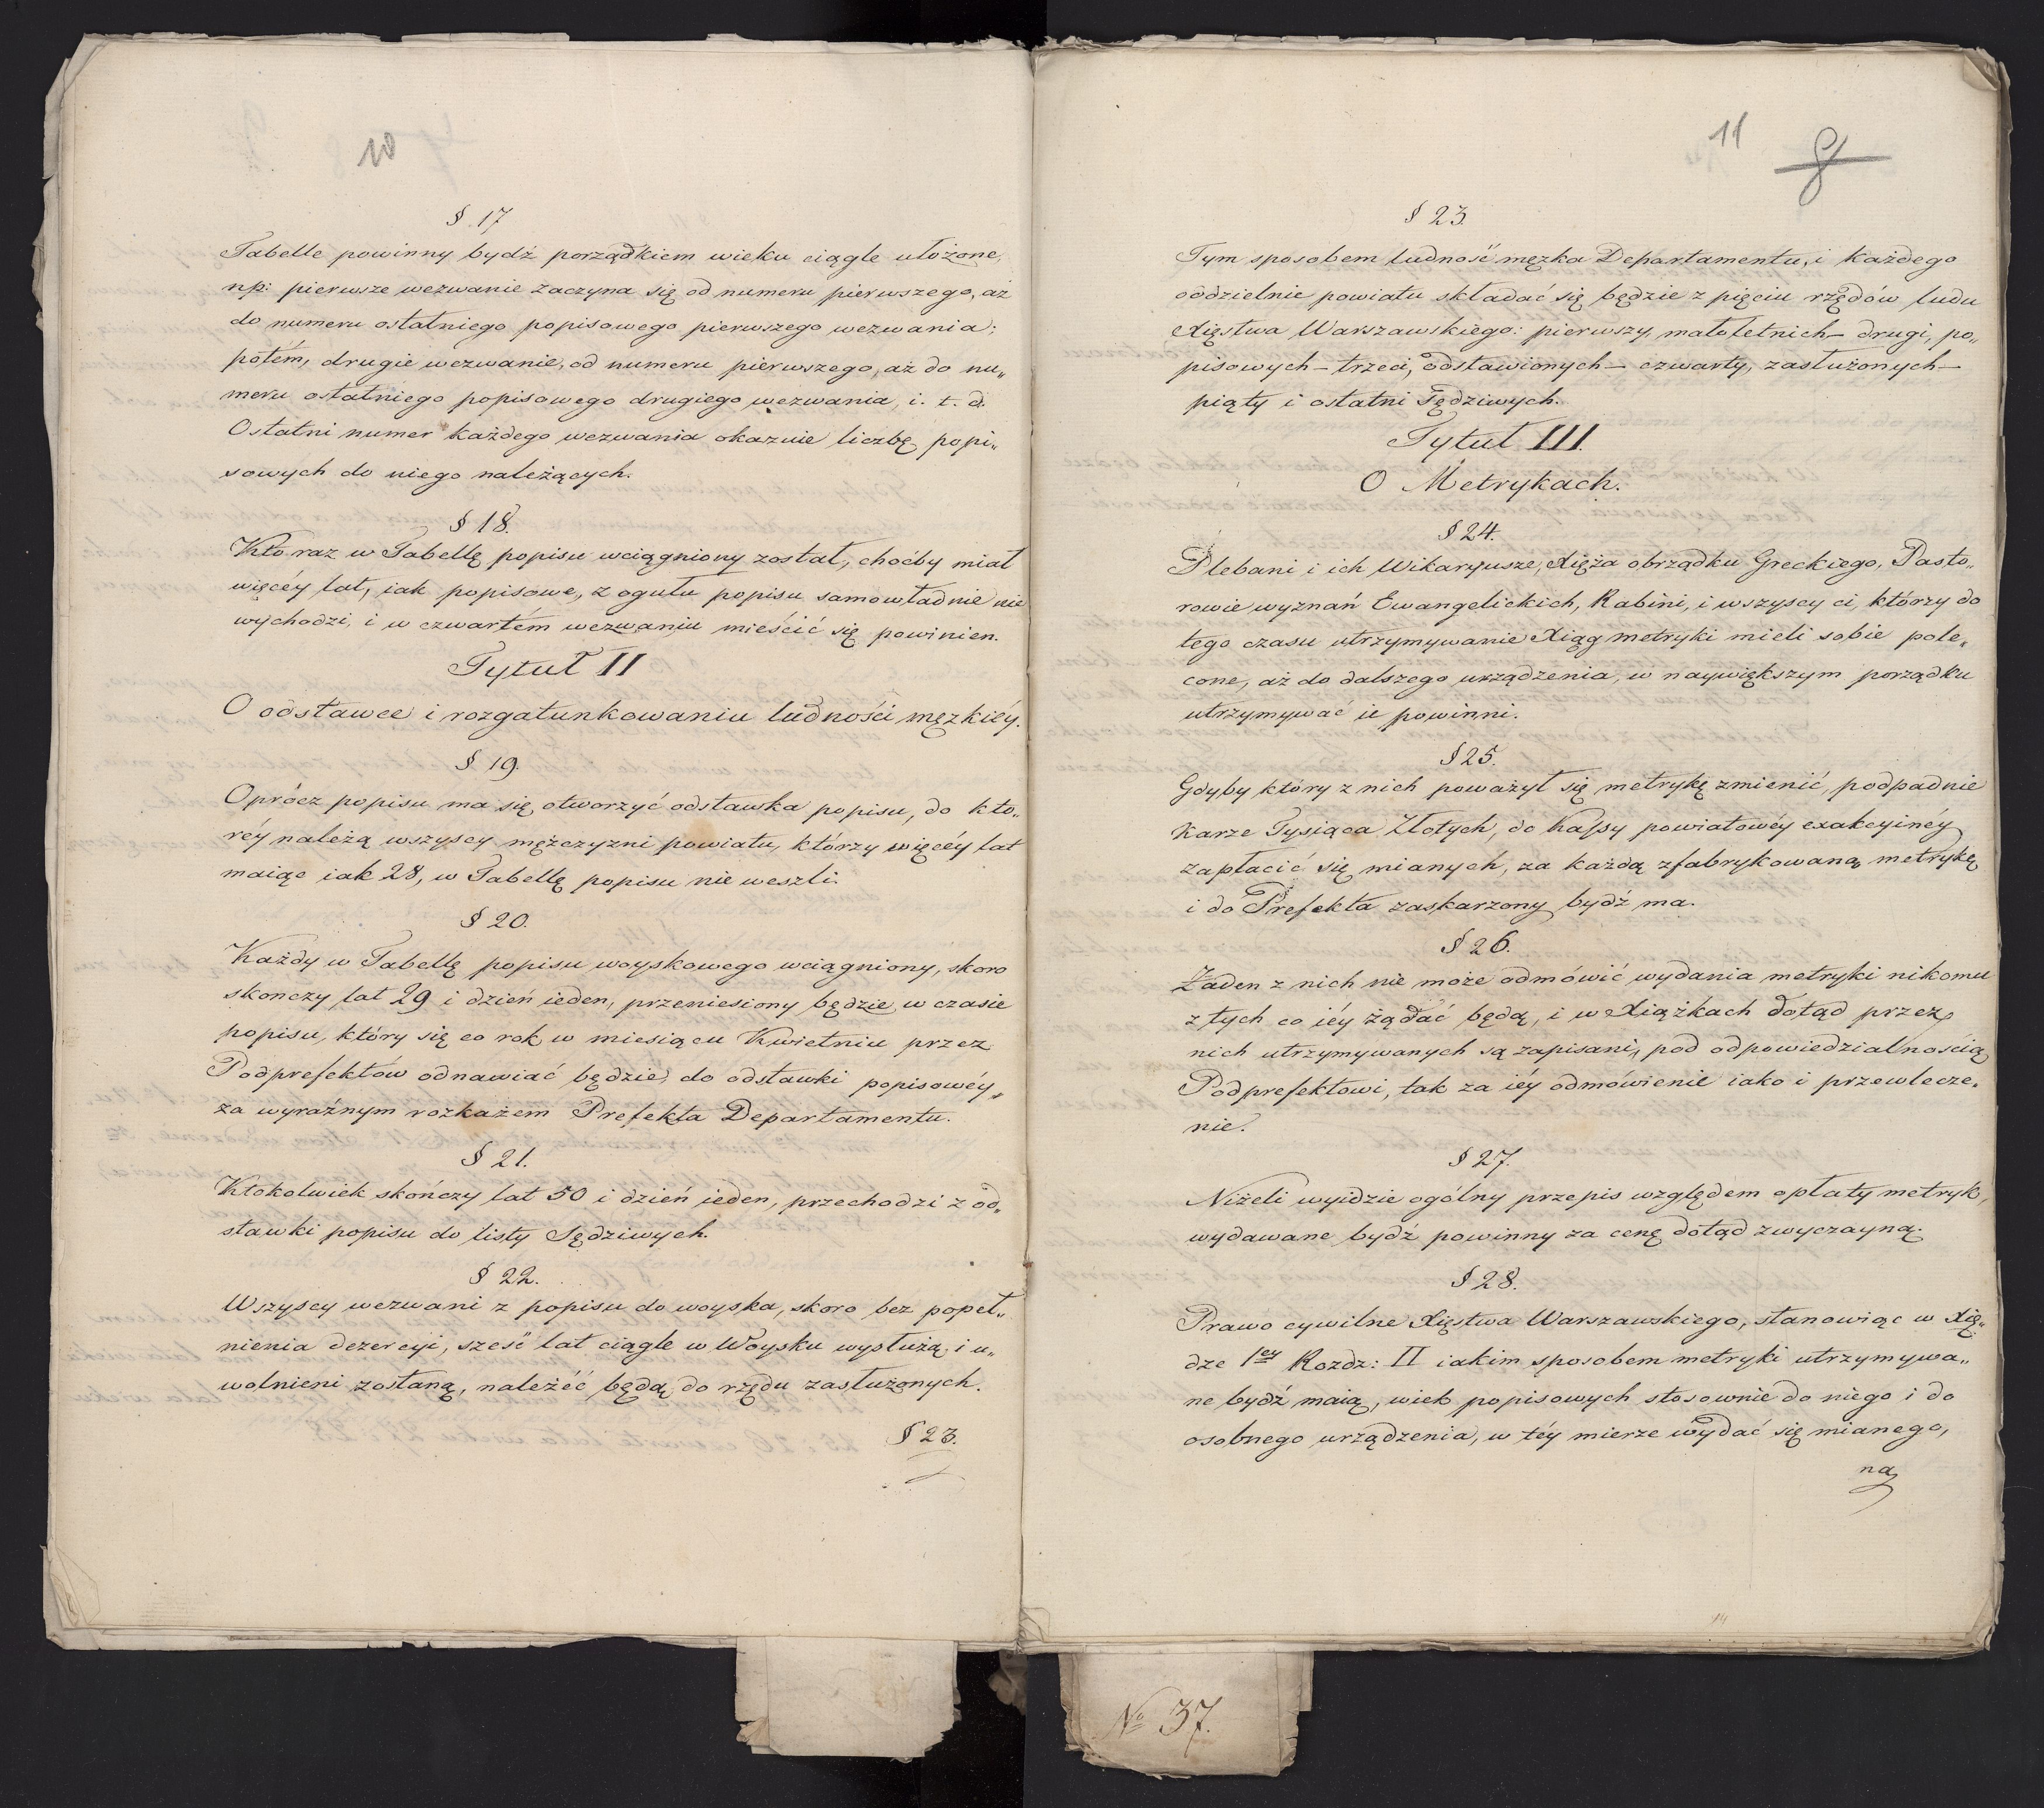 10
§. 17
Tabelle powinny bydź porządkiem wieku ciągle ułożone,
np: pierwsze wezwanie zaczyna się od numeru pierwszego, aż
do numeru ostatniego popisowego pierwszego wezwania;
potém, drugie wezwanie, od numeru pierwszego, aż do nu„
meru ostatniego popisowego drugiego wezwania, i. t. d.
Ostatni numer każdego wezwania okazuie liczbę popi„
sowych do niego należących.
§ 18.
Kto raz w Tabellę popisu wciągniony został, choćby miał
więcéy lat, iak popisowe, z ogułu popisu samowładnie nie
wychodzi, i w czwartém wezwaniu mieścić się powinien.
Tytuł II
O odstawce i rozgatunkowaniu ludności męzkiéy.
§ 19.
Oprócz popisu ma się otworzyć odstawka popisu, do któ„
réy należą wszyscy mężczyzni powiatu, którzy więcéy lat
maiąc iak 28, w Tabellę popisu nie weszli.
§ 20.
Każdy w Tabellę popisu woyskowego wciągniony, skoro
skonczy lat 29 i dzień ieden, przeniesiony będzie w czasie
popisu, który się co rok w miesiącu Kwietniu przez
Podprefektów odnawiać będzie, do odstawki popisowéy„
za wyraźnym rozkazem Prefekta Departamentu.
§ 21.
Ktokolwiek skończy lat 50 i dzień ieden, przechodzi z od„
stawki popisu do listy Sędziwych.
§ 22.
Wszyscy wezwani z popisu do woyska, skoro bez popeł„
nienia dezercyi, sześć lat ciągle w Woysku wysłużą, i u„
wolnieni zostaną, należéć będą do rzędu zasłużonych.
§ 23.
11
8
§ 23.
Tym sposobem ludność męzka Departamentu, i każdego
oddzielnie powiatu składać się będzie z pięciu rzędów ludu
Xięstwa Warszawskiego: pierwszy, małoletnich – drugi, po„
pisowych – trzeci, odstawionych – czwarty, zasłużonych –
piąty i ostatni Sędziwych.
Tytuł III.
O Metrykach.
§ 24.
Plebani i ich Wikaryusze, Xięża obrządku Greckiego, Pasto„
rowie wyznań Ewangelickich, Rabini, i wszyscy ci, którzy do
tego czasu utrzymywanie Xiąg metryki mieli sobie pole„
cone, aż do dalszego urządzenia, w naywiększym porządku
utrzymywać ie powinni.
§ 25.
Gdyby który z nich poważył się metrykę zmienić, podpadnie
karze Tysiąca Złotych, do Kassy powiatowéy exakcyinéy
zapłacić się mianych, za każdą zfabrykowaną metrykę
i do Prefekta zaskarzony bydź ma.
§ 26.
Żaden z nich nie może odmówić wydania metryki nikomu
z tych co iéy żądać będą, i w Xiążkach dotąd przez
nich utrzymywanych są zapisani, pod odpowiedzialnością
Podprefektowi, tak za iéy odmówienie iako i przewlecze„
nie.
§ 27.
Niżeli wyidzie ogólny przepis względem opłaty metryk,
wydawane bydź powinny za cenę dotąd zwyczayną.
§ 28.
Prawo cywilne Xięstwa Warszawskiego, stanowiąc w Xię„
dze 1ey Rozdz: II iakim sposobem metryki utrzymywa„
ne bydź maią, wiek popisowych stosownie do niego i do
osobnego urządzenia, w téy mierze wydać się mianego,
na
14
No 37.